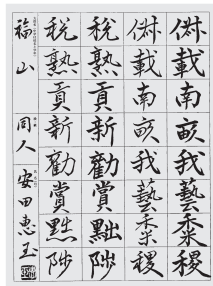 俶載南畝我藝黍稷
俶載南畝我藝黍稷
稅熟貢新勸賞黜陟
稅熟貢新勸賞黜陟
福山 同人 安田惠玉